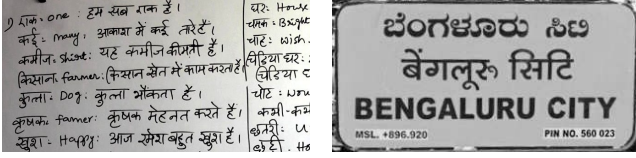 1) एक: one: हम सब एक है।
कई: many, आकाश में कई तारे है।
कमीज: Shirt: यह कमीज कीमती है।
किसान: farmer: किसान खेत में काम करता है।
कुत्ता: Dog: कुत्ता भौंकता है।
कृषक: farmer: कृषक मेहनत करते है।
खुश: Happy: आज रमेश बहुत खुश है।
घर: House
चमक: Bright
चाह: wish.
चिड़िया घर:
(चिड़िया
चोट: Wou
कभी-कभ
छतरी: U
Ho
ಬೆಂಗಳೂರು ಸಿಟಿ
बेंगलूरू सिटि
BENGALURU CITY
MSL. +896.920 PIN NO. 560 023